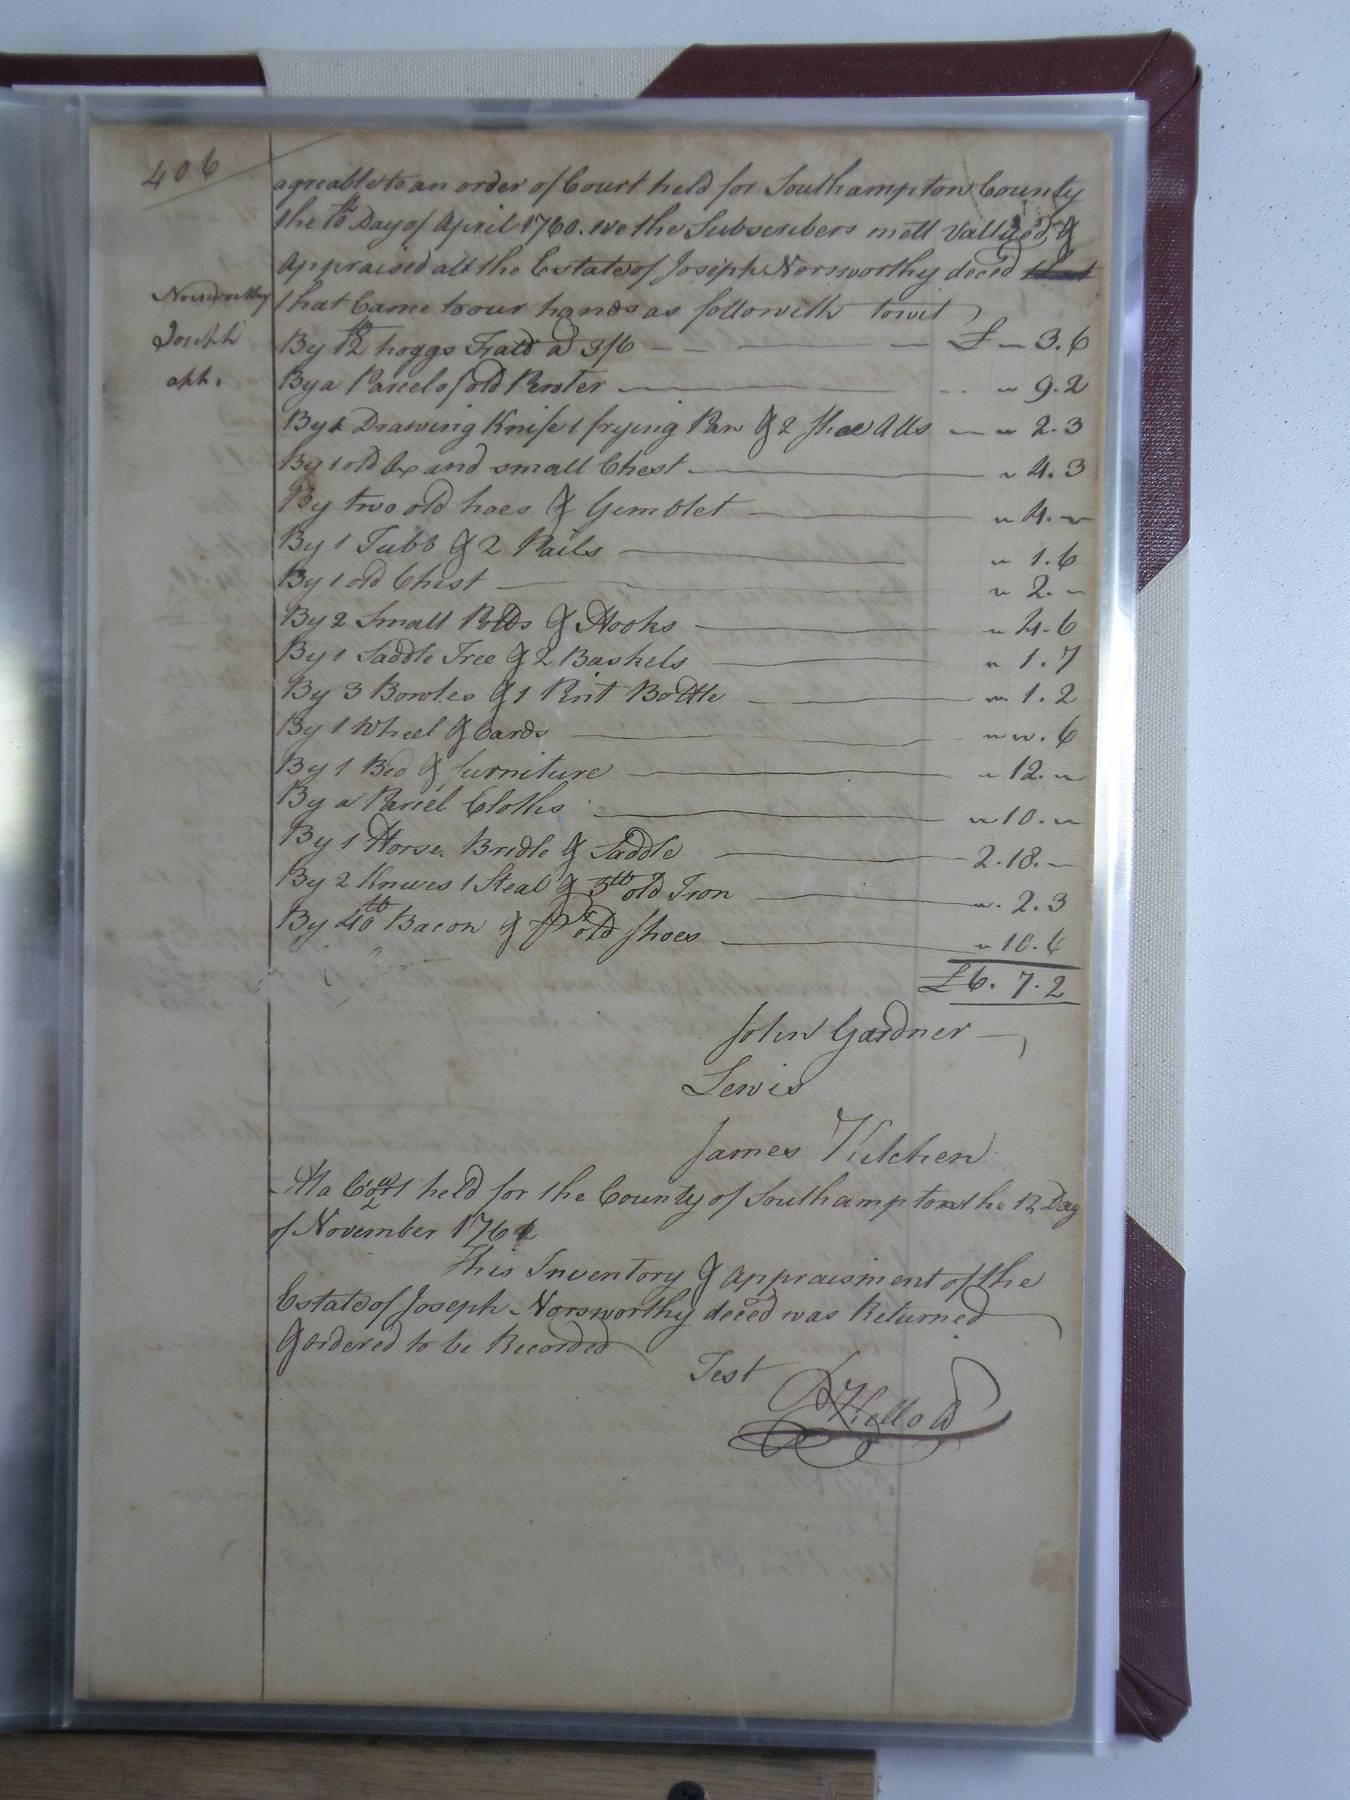 406
agreable to an order of Court held for Southampton County
the th Day of April 1760. we the Subscribers mett Vallued, &
Appraised all the Estate of Joseph Norsworthy deced that
that Came to our hands as followith towit
Norsworthy
Joseph
aph.
By 12 hoggs Fatt a 3/6 £ " 3.6
By a Parcel of old Pewter " 9.2
By 1 Drawing Knife 1 frying Pan & 2 Shoe Alls " 2.3
By 1 old Ax and small Chest " 4.3
By two old hoes & Gemblet " 4. "
By 1 Tubb & 2 Pails " 1.6
By 1 old Chest " 2. "
By 2 Small Potts & Hooks " 4.6
By 1 Saddle Tree & 2 Baskets " 1.7
By 3 Bowles & 1 Pint Bottle " 1.2
By 1 Wheel & Cards " " . 6
By 1 Bed & furniture " 12. "
By a Parcel Cloths " 10. "
By 1 Horse. Bridle & Saddle 2.18. "
By 2 Knives 1 Steal & 5 lb old Iron " 2.3
By 40 lb Bacon & pr old Shoes " 10.6
£ 6. 7. 2
John Gardner
Lewis
James Kitchen
At a Court held for the County of Southampton the 12 Day
of November 1761
This Inventory & Appraisment of the
Estate of Joseph Norsworthy deced was Returned
& ordered to be Recorded
Test
R Kello Cl